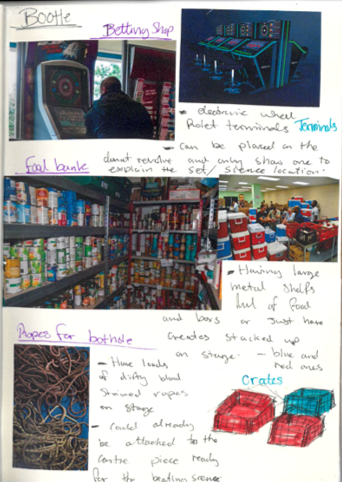 Bootle
Betting Shop
- electronic wheel
Rolet terminals Terminals
- can be placed on the
donut revolve and only show one to
explain the set/science location.
Food bank
- Having large
metal shelfs
full of food
and bars or Just have
creates stacked up
on stage. - blue and
red ones
Ropes for bothole
- Have loads
of dirty blood
stained ropes
on stage
- Could already
be attached to the
centre piece ready
for the beating science
Crates